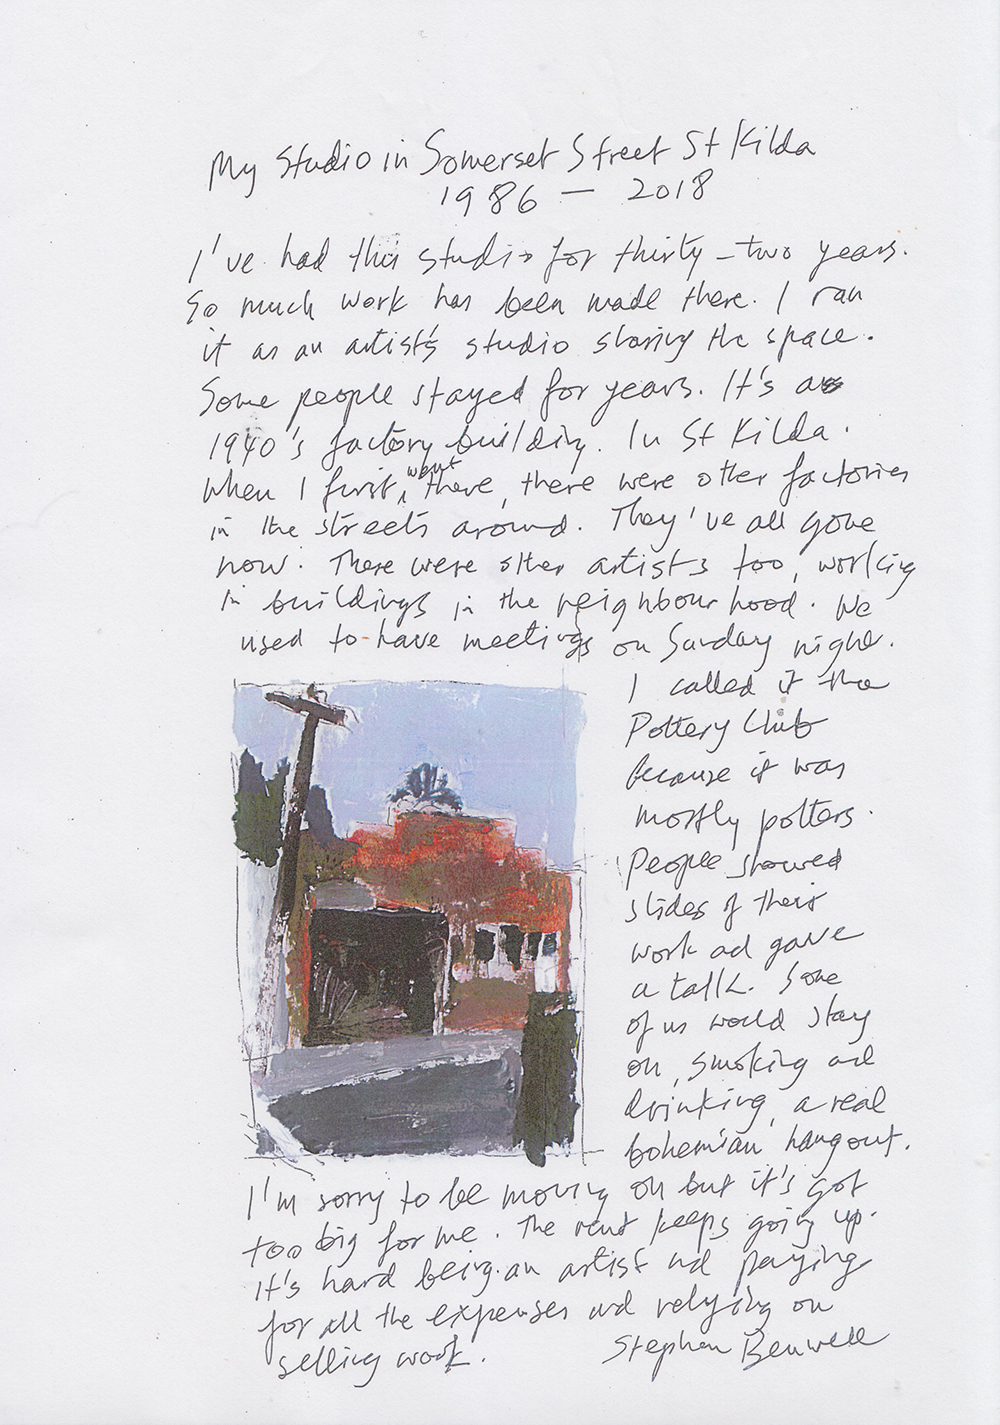 My Studio in Somerset Street St Kilda
1986 — 2018
I've had this studio for thirty-two years.
So much work has been made there. I ran
it as an artist's studio sharing the space.
Some people stayed for years. It's a
1940's factory building. In St Kilda.
When I first went there, there were other factories
in the streets around. They've all gone
now. There were other artists too, working
in buildings in the neighbourhood. We
used to have meetings on Sunday night.
I called it the
Pottery Club
because it was
mostly potters.
People showed
slides of their
work ad gave
a talk. Some
of us would stay
on, smoking ad
drinking, a real
bohemian hangout.
I'm sorry to be moving on but it's got
too big for me. The rent keeps going up.
It's hard being an artist ad paying
for all the expenses and relying on
selling work.
Stephen Benwell